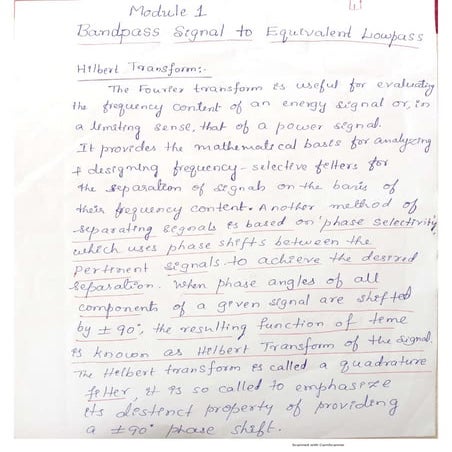 Module 1
Bandpass Signal to Equivalent Lowpass
Hilbert Transform:-
The Fourier transform is useful for evaluating
the frequency content of an energy signal or, in
a limiting sense, that of a power signal.
It provides the mathematical basis for analyzing
& designing frequency-selective filters for
the separation of signals on the basis of
their frequency content. Another method of
separating signals is based on 'phase selectivity'
which uses phase shifts between the
pertinent signals to achieve the desired
separation. When phase angles of all
components of a given signal are shifted
by ± 90°, the resulting function of time
is known as Hilbert Transform of the signal.
The Hilbert transform is called a quadrature
filter, it is so called to emphasize
its distinct property of providing
a ±90° phase shift.